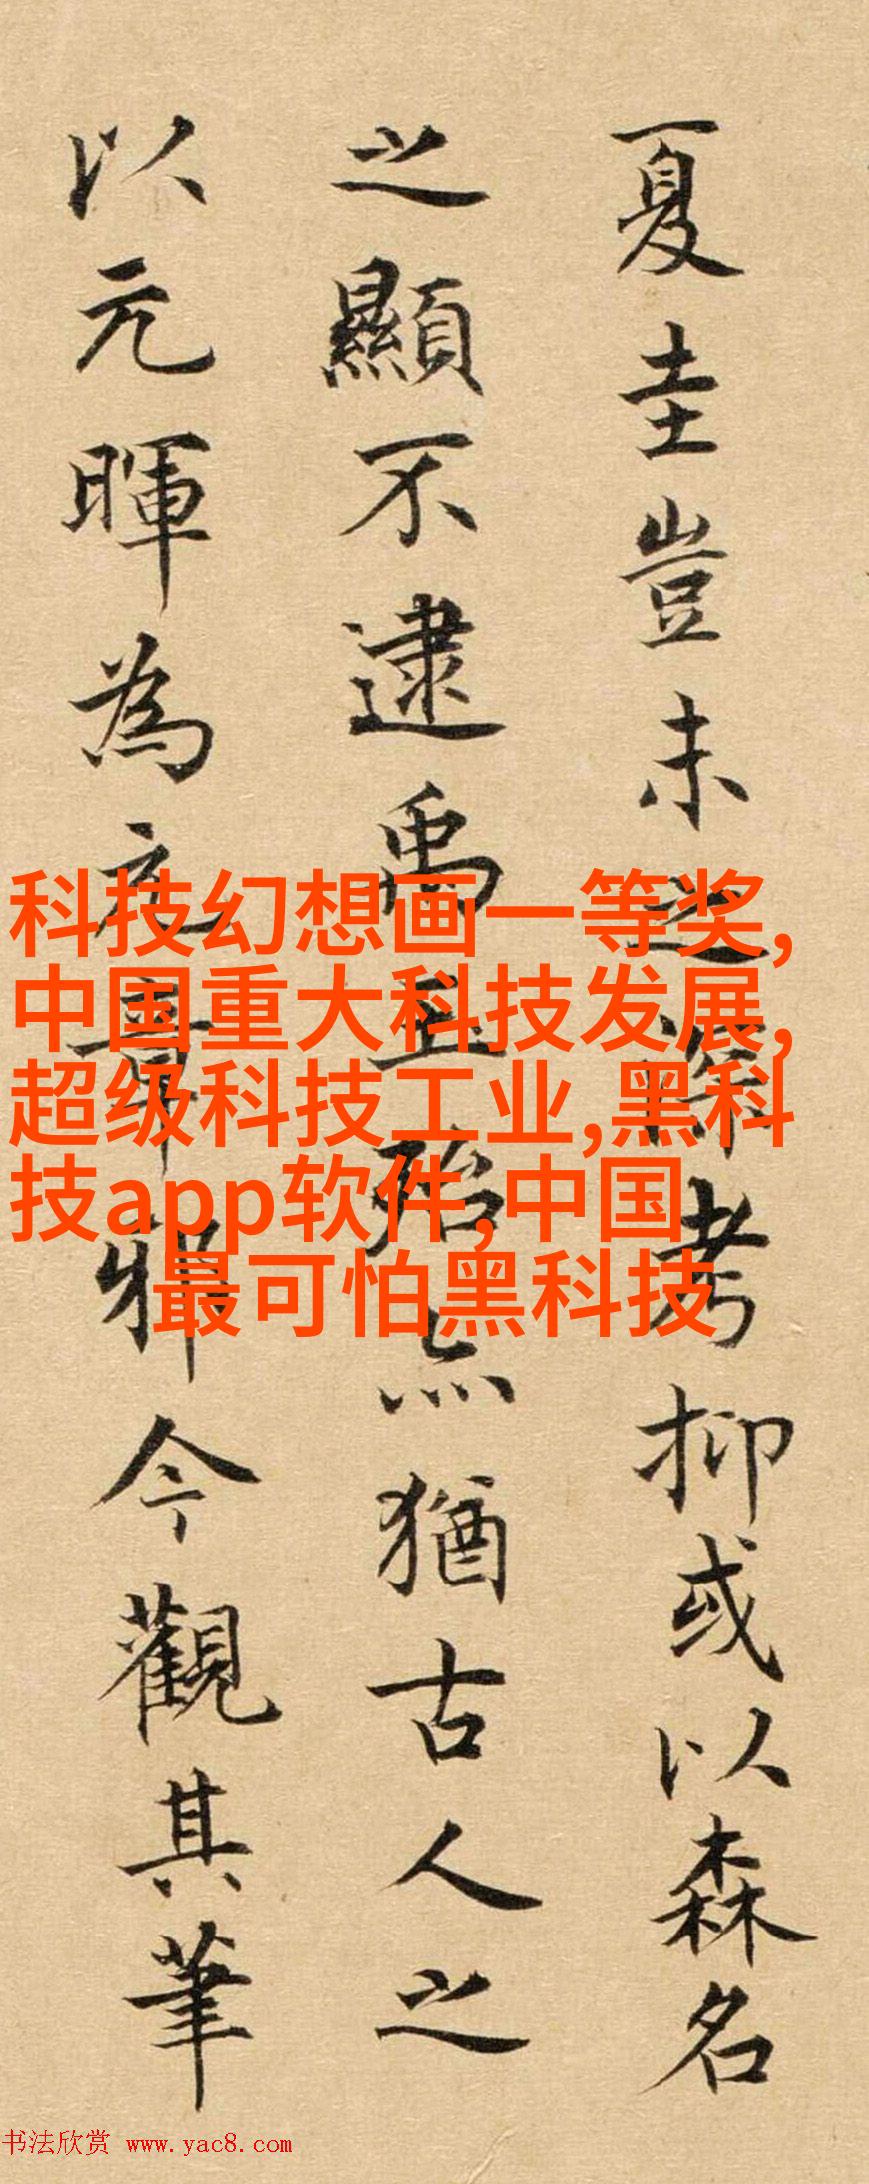 夏圭豈未之深考抑或以森名
之顯不逮禹玉殆亦猶古人之
以元暉為元章邪今觀其筆
科技幻想画一等奖,
中国重大科技发展,
超级科技工业,黑科
技app软件,中国
最可怕黑科技
书法欣赏 www.yac8.com